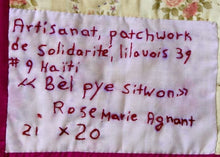 Artisanat, patchwork
de Solidarité, lilavois 39
# 9 Haïti
« Bèl pye sitwon »
Rose Marie Agnant
21 x 20